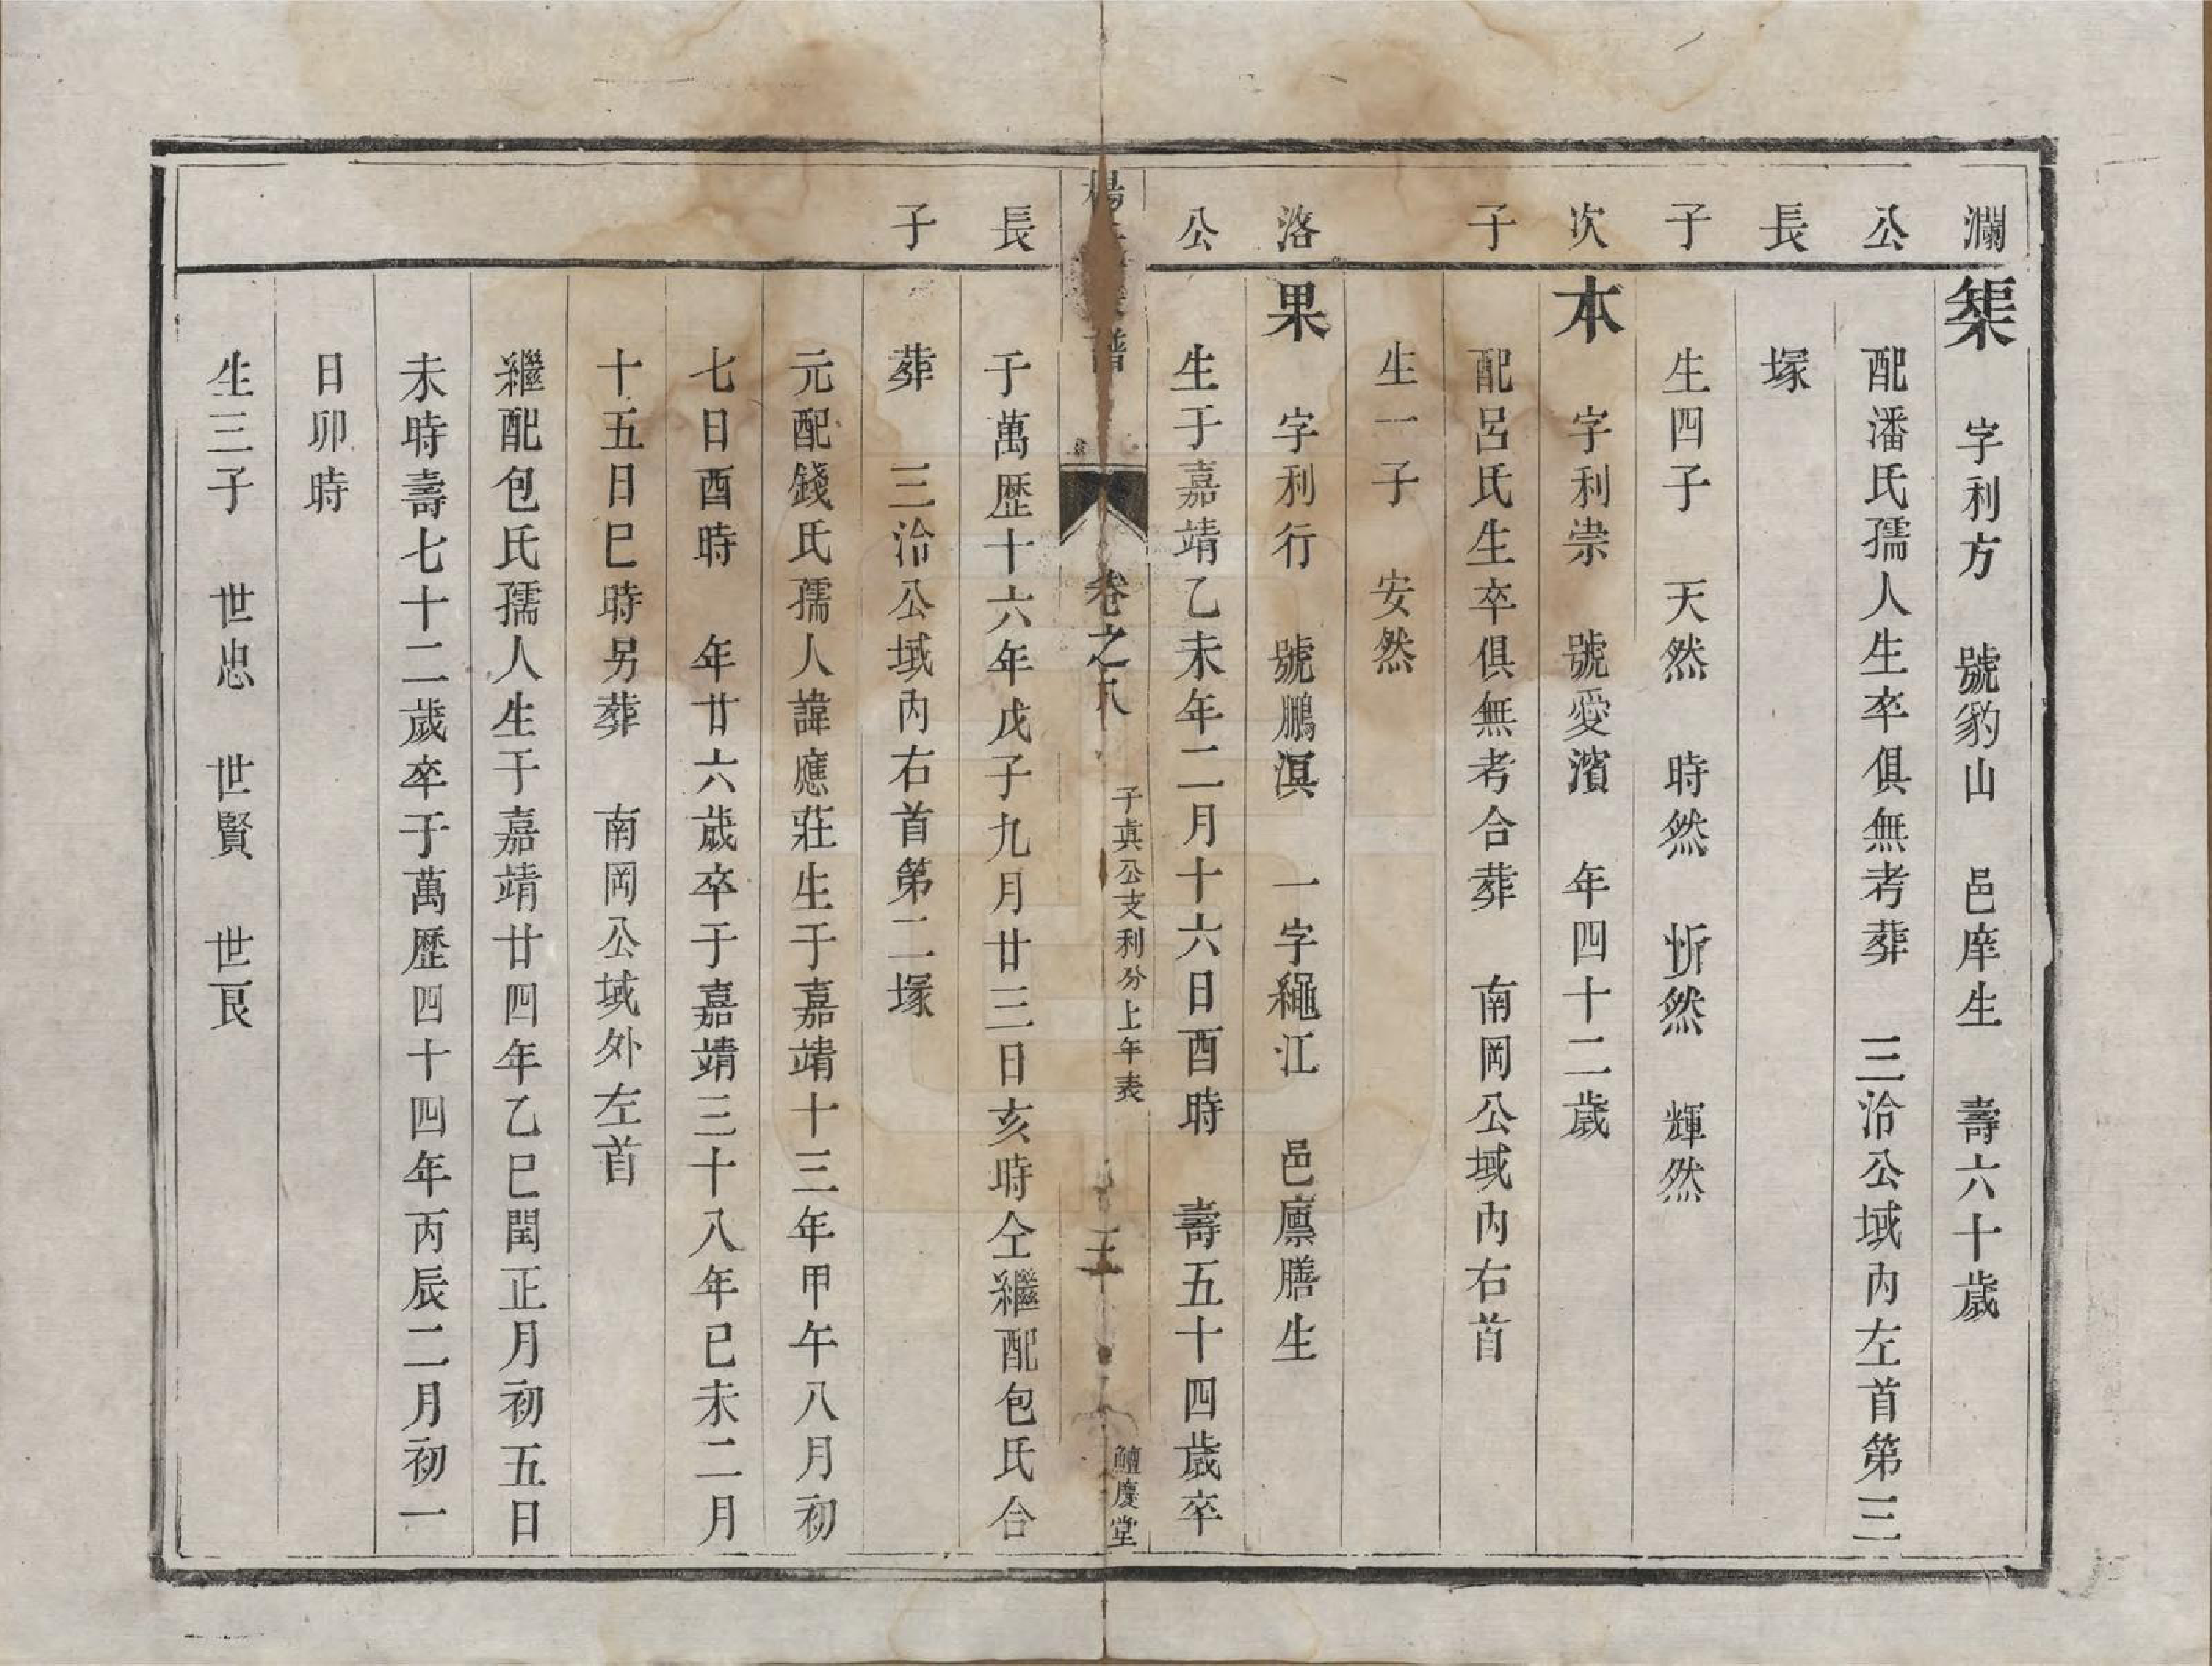 瀾 榘 字利方 號豹山 邑庠生 壽六十歲
公 配潘氏孺人生卒俱無考葬 三洽公域內左首第三
長 塚
子 生四子 天然 時然 忻然 輝然
次 本 字利崇 號愛濱 年四十二歲
子 配呂氏生卒俱無考合葬 南岡公域內右首
生一子 安然
洛 果 字利行 號鵬溟 一字繩江 邑廩膳生
公 生于嘉靖乙未年二月十六日酉時 壽五十四歲卒
楊 譜 卷之 子真公支利分上年表 三 鱣慶堂
長 于萬歷十六年戊子九月廿三日亥時仝繼配包氏合
子 葬 三洽公域內右首第二塚
元配錢氏孺人諱應莊生于嘉靖十三年甲午八月初
七日酉時 年廿六歲卒于嘉靖三十八年已未二月
十五日巳時另葬 南岡公域外左首
繼配包氏孺人生于嘉靖廿四年乙巳閏正月初五日
未時壽七十二歲卒于萬歷四十四年丙辰二月初一
日卯時
生三子 世忠 世賢 世良